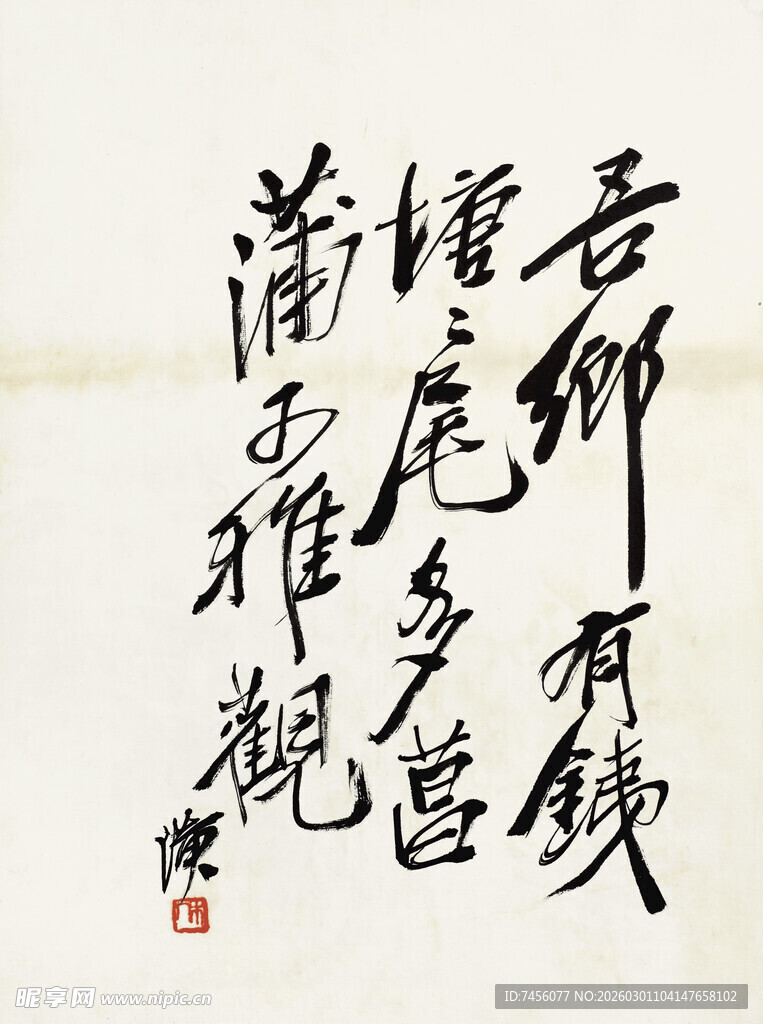 吾鄉有銕
塘〻尾多菖
蒲可雅觀
璜
木人
昵享网 www.nipic.cn
ID:7456077 NO:20260301104147658102